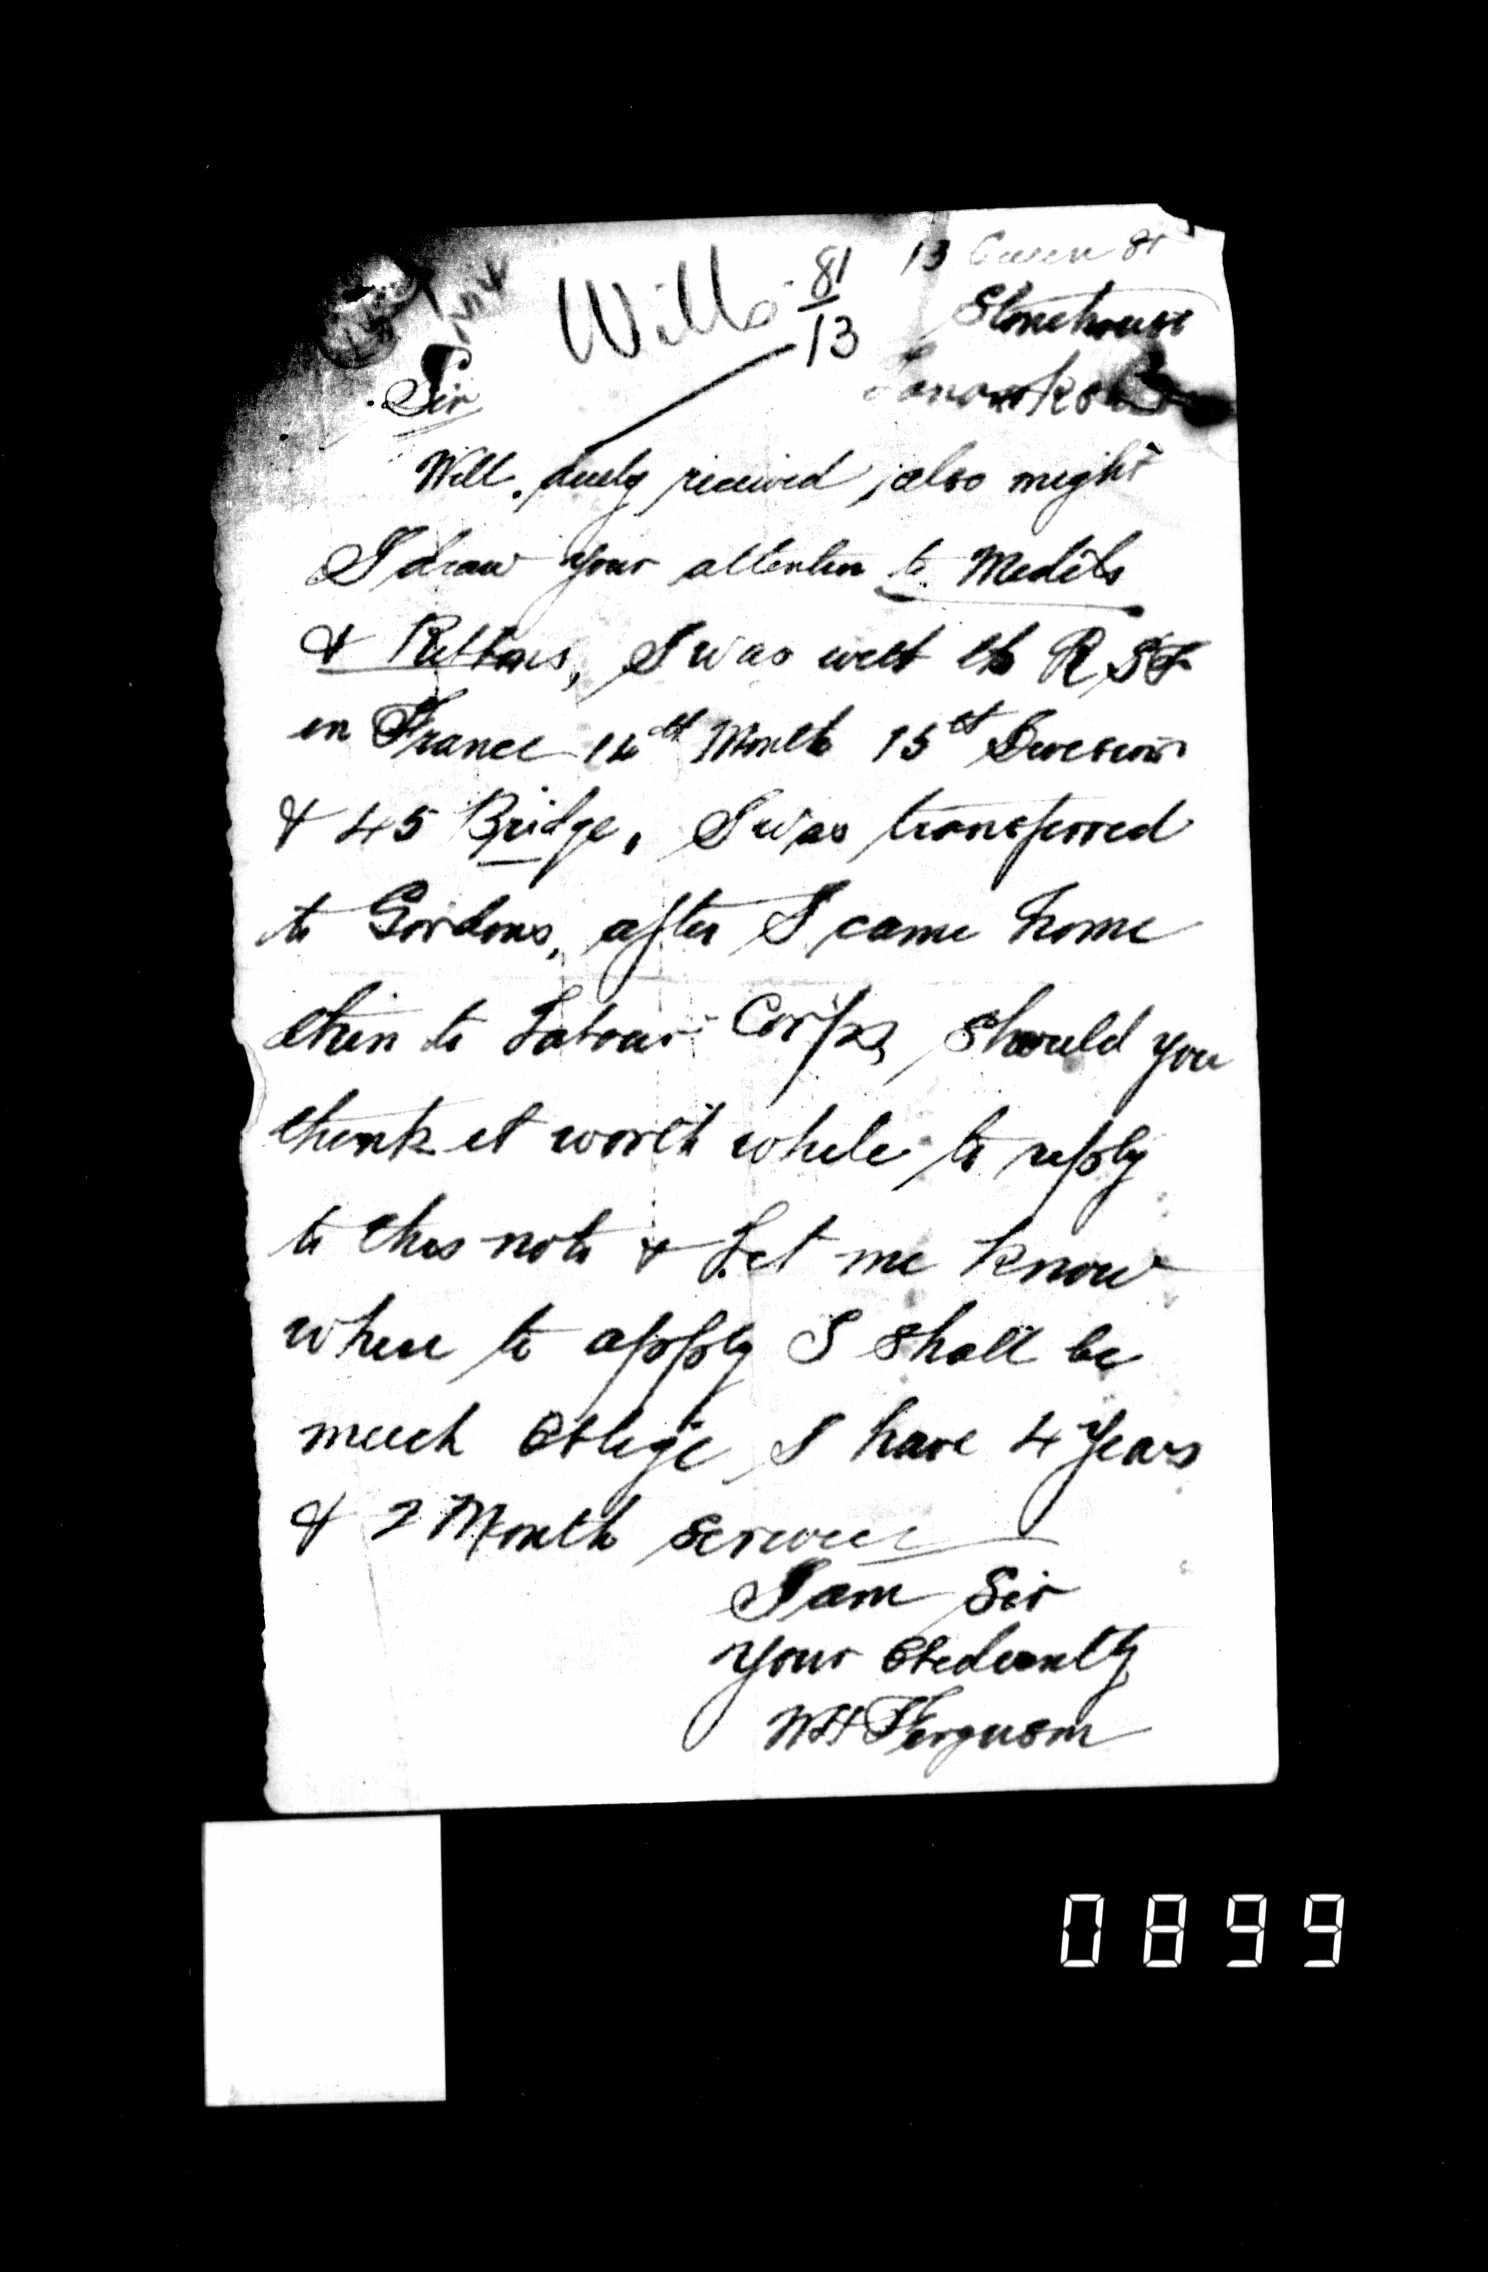 Wills 81/13
13 Queen St
Stonehouse
Sir
Will. duely received, also might
I draw your attention to Medels
& Ribbons, I was with th R S F
in France 14th Month 15th Division
& 45 Bridge, I was transferred
to Gordons, after I came home
then to Labour Corps, Should you
think it worth while to reply
to this note & Let me know
where to apply I shall be
much Oblige, I have 4 years
& 2 Month Service
I am Sir
your Obediently
WH Ferguson
0899